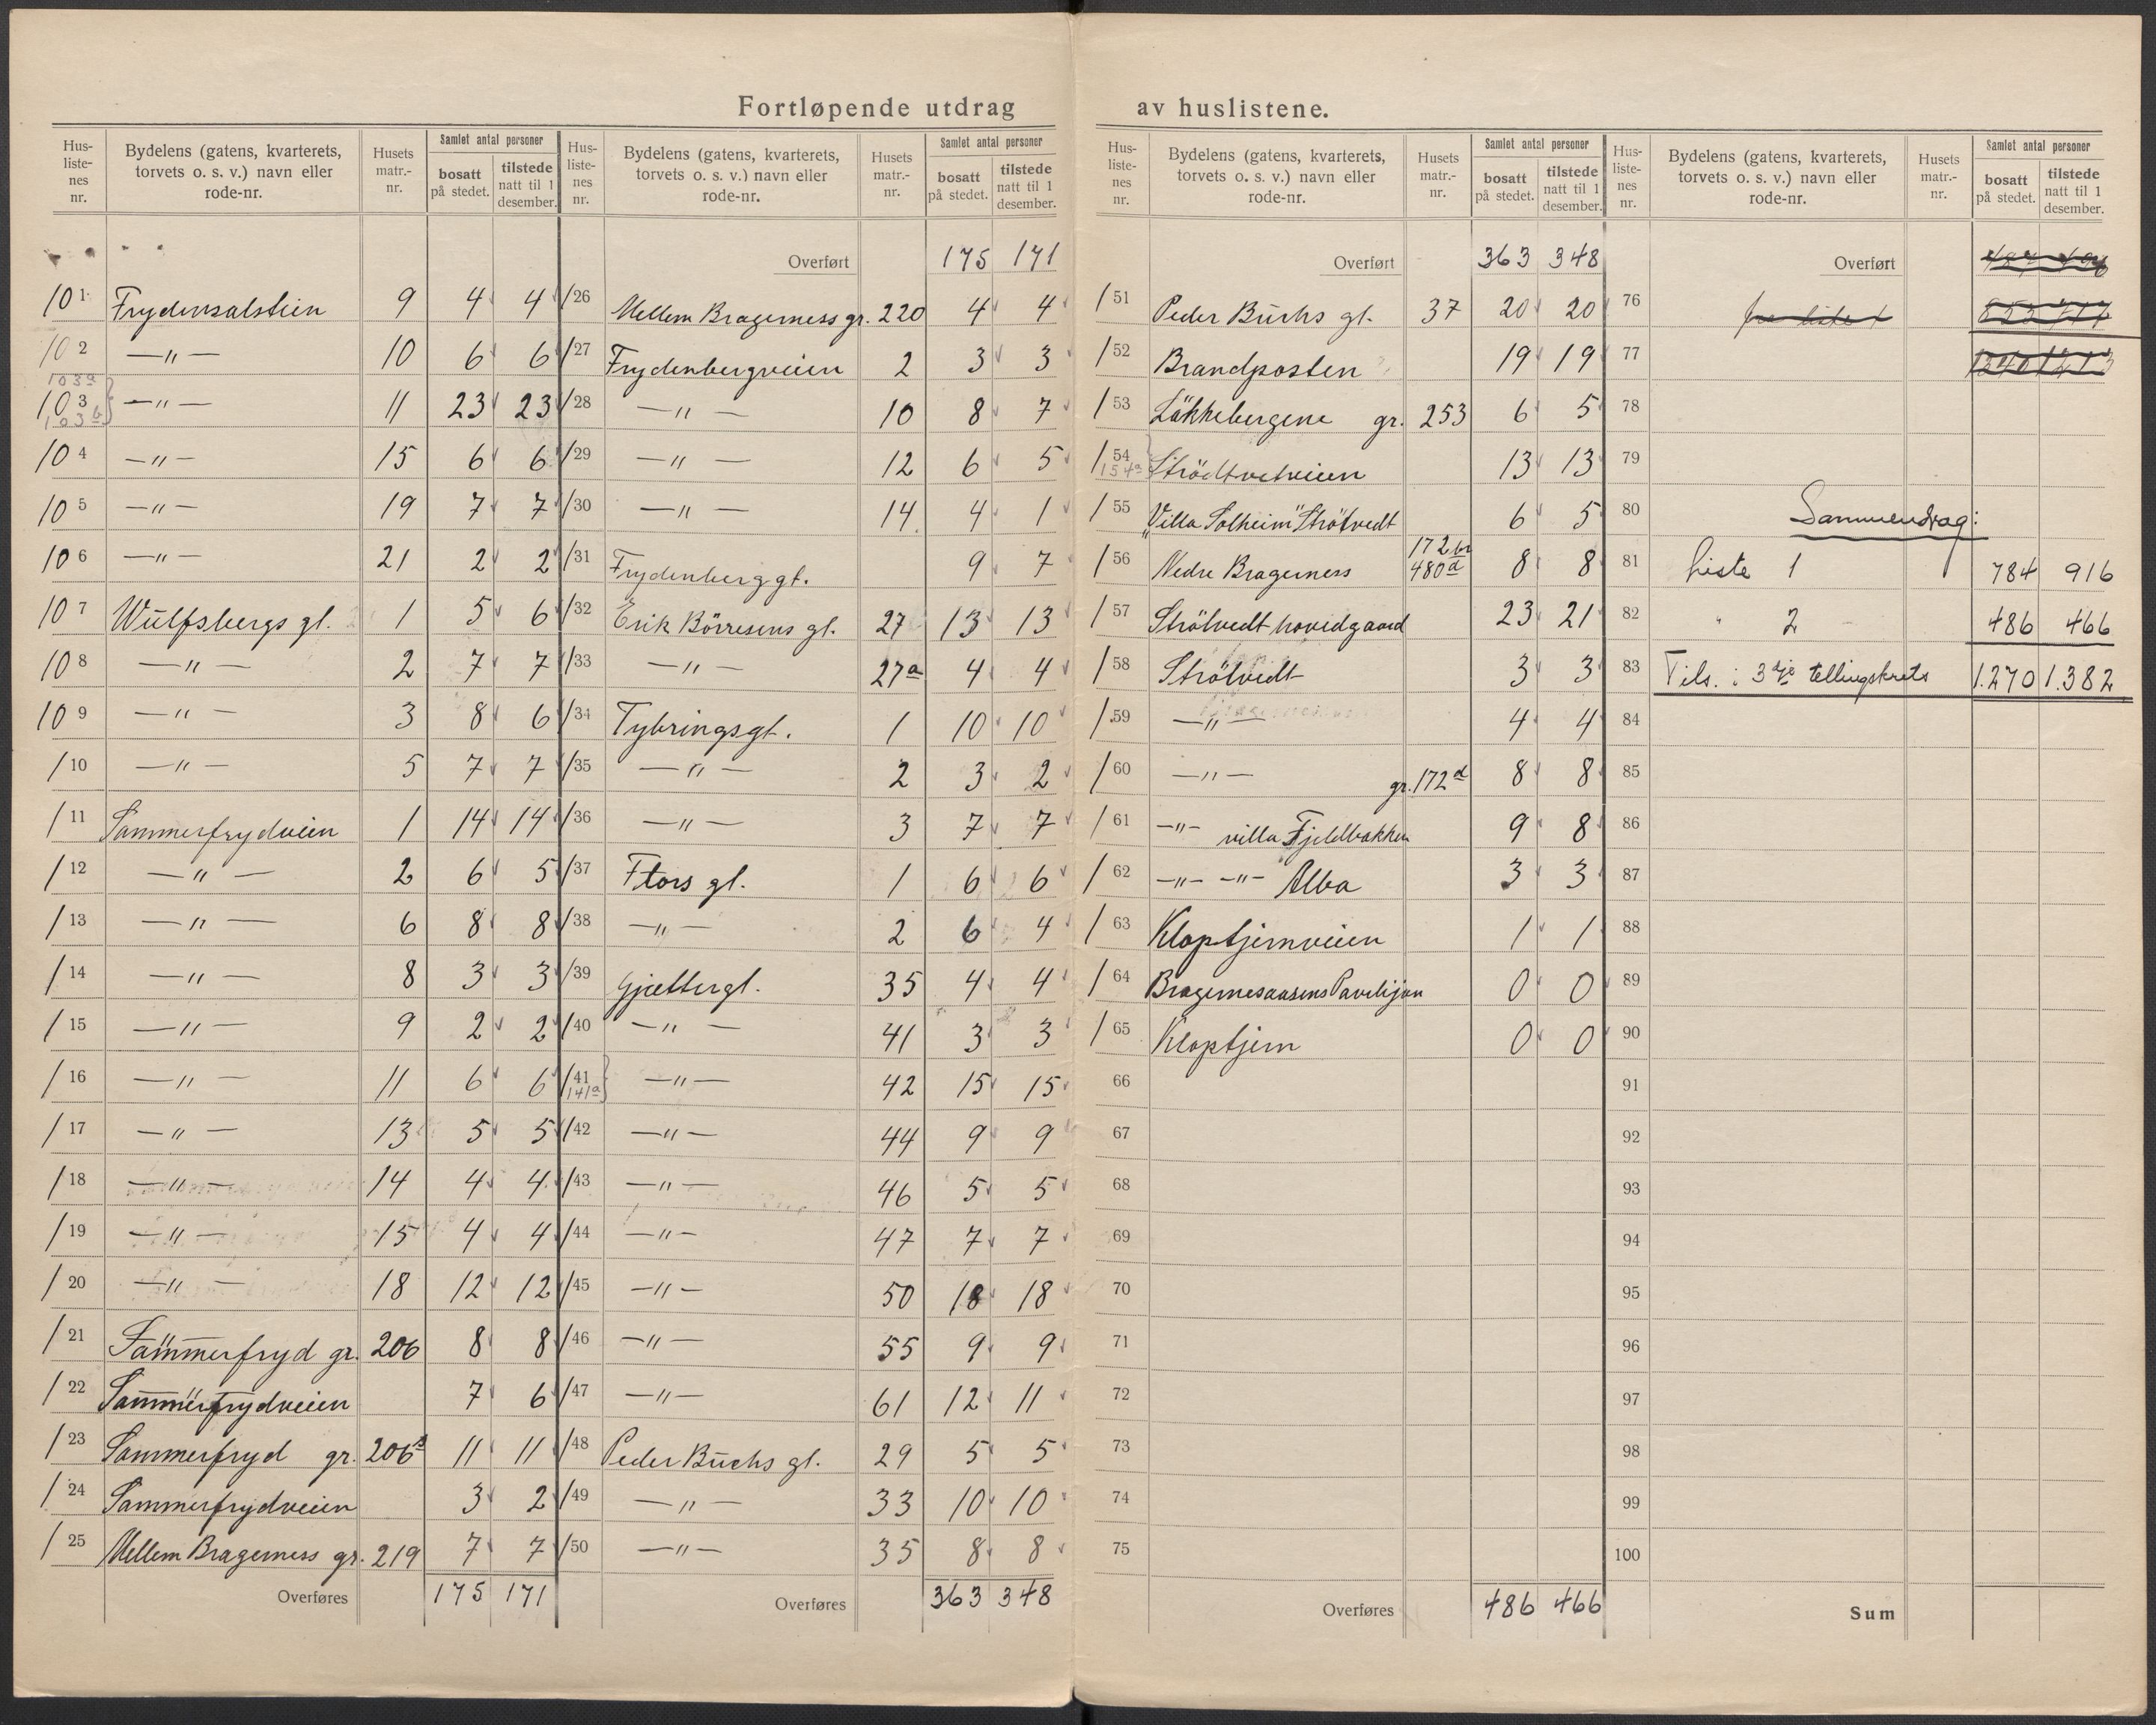 Fortløpende utdrag av huslistene.
Hus-liste-nes nr. | Bydelens (gatens, kvarterets, torvets o. s. v.) navn eller rode-nr. | Husets matr.-nr. | Samlet antal personer | bosatt på stedet. | tilstede natt til 1 desember.
101 Frydensalstien 9 4 4
102 —"— 10 6 6
103a
103 —"— 11 23 23
103b
104 —"— 15 6 6
105 —"— 19 7 7
106 —"— 21 2 2
107 Wulfsbergs gt. 1 5 6
108 —"— 2 7 7
109 —"— 3 8 6
/10 —"— 5 7 7
/11 Sommerfrydveien 1 14 14
/12 —"— 2 6 5
/13 —"— 6 8 8
/14 —"— 8 3 3
/15 —"— 9 2 2
/16 —"— 11 6 6
/17 —"— 13 5 5
/18 —"— 14 4 4
/19 —"— 15 4 4
/20 —"— 18 12 12
/21 Sommerfryd gr. 206 8 8
/22 Sommerfrydveien 7 6
/23 Sommerfryd gr. 206 11 11
/24 Sommerfrydveien 3 2
/25 Mellem Bragerness gr. 219 7 7
Overføres 175 171
Hus-liste-nes nr. | Bydelens (gatens, kvarterets, torvets o. s. v.) navn eller rode-nr. | Husets matr.-nr. | Samlet antal personer | bosatt på stedet. | tilstede natt til 1 desember.
Overført 175 171
/26 Mellem Bragerness gr. 220 4 4
/27 Frydenbergveien 2 3 3
/28 —"— 10 8 7
/29 —"— 12 6 5
/30 —"— 14 4 1
/31 Frydenberggt. 9 7
/32 Erik Börresens gt. 27 13 13
/33 —"— 27a 4 4
/34 Tybringsgt. 1 10 10
/35 —"— 2 3 2
/36 —"— 3 7 7
/37 Flors gt. 1 6 6
/38 —"— 2 6 4
/39 Gjættergt. 35 4 4
/40 —"— 41 3 3
/41 —"— 42 15 15
141a
/42 —"— 44 9 9
/43 —"— 46 5 5
/44 —"— 47 7 7
/45 —"— 50 18 18
/46 —"— 55 9 9
/47 —"— 61 12 11
/48 Peder Buchs gt. 29 5 5
/49 —"— 33 10 10
/50 —"— 35 8 8
Overføres 363 348
Hus-liste-nes nr. | Bydelens (gatens, kvarterets, torvets o. s. v.) navn eller rode-nr. | Husets matr.-nr. | Samlet antal personer | bosatt på stedet. | tilstede natt til 1 desember.
Overført 363 348
/51 Peder Buchs gt. 37 20 20
/52 Brandposten 19 19
/53 Løkkebergene gr. 253 6 5
/54 Strödtvetveien 13 13
154a
/55 Villa Solheim" Strötvedt 6 5
/56 Nedre Bragerness 480d 8 8
/57 Strötvedt hovedgaard 23 21
/58 Strötvedt 3 3
/59 —"— 4 4
/60 —"— gr. 172d 8 8
/61 —"— villa Fjeldbakken 9 8
/62 —"— —"— Alba 3 3
/63 Kloptjernveien 1 1
/64 Bragernesaasens Paviljon 0 0
/65 Kloptjern 0 0
66
67
68
69
70
71
72
73
74
75
Overføres 486 466
Hus-liste-nes nr. | Bydelens (gatens, kvarterets, torvets o. s. v.) navn eller rode-nr. | Husets matr.-nr. | Samlet antal personer | bosatt på stedet. | tilstede natt til 1 desember.
Overført
76
77
78
79
80 Sammendrag:
81 Liste 1 784 916
82 " 2 486 466
83 Tils. i 3dje tellingskrets 1.270 1.382
84
85
86
87
88
89
90
91
92
93
94
95
96
97
98
99
100
Sum